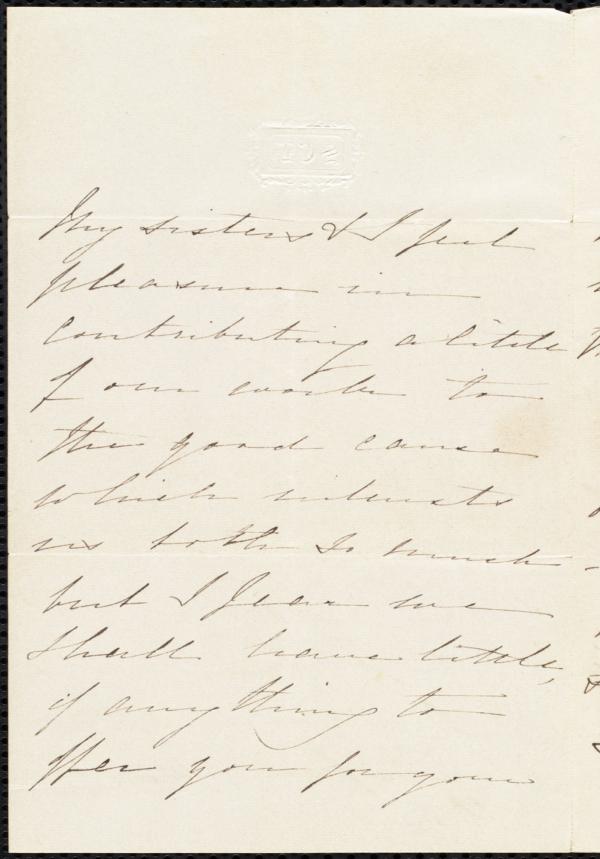 My sisters & I feel
pleasure in
contributing a little
of our work to
the good cause
which interests
us both so much
but I fear we
shall have little,
if anything to
offer you for your